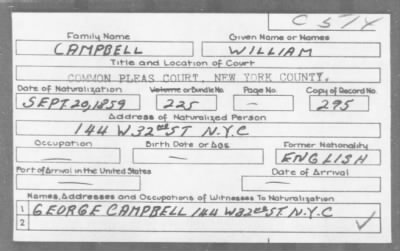 C 514
Family Name Given Name or Names
CAMPBELL WILLIAM
Title and Location of Court
COMMON PLEAS COURT, NEW YORK COUNTY.
Date of Naturalization Volume or Bundle No. Page No. Copy of Record No.
SEPT. 20, 1859 225 — 295
Address of Naturalized Person
144 W. 32nd ST N.Y.C
Occupation Birth Date or Age Former Nationality
— — ENGLISH
Port of Arrival in the United States Date of Arrival
— —
Names, Addresses and Occupations of Witnesses To Naturalization
1 GEORGE CAMPBELL 144 W 32nd ST. N.Y.C
2